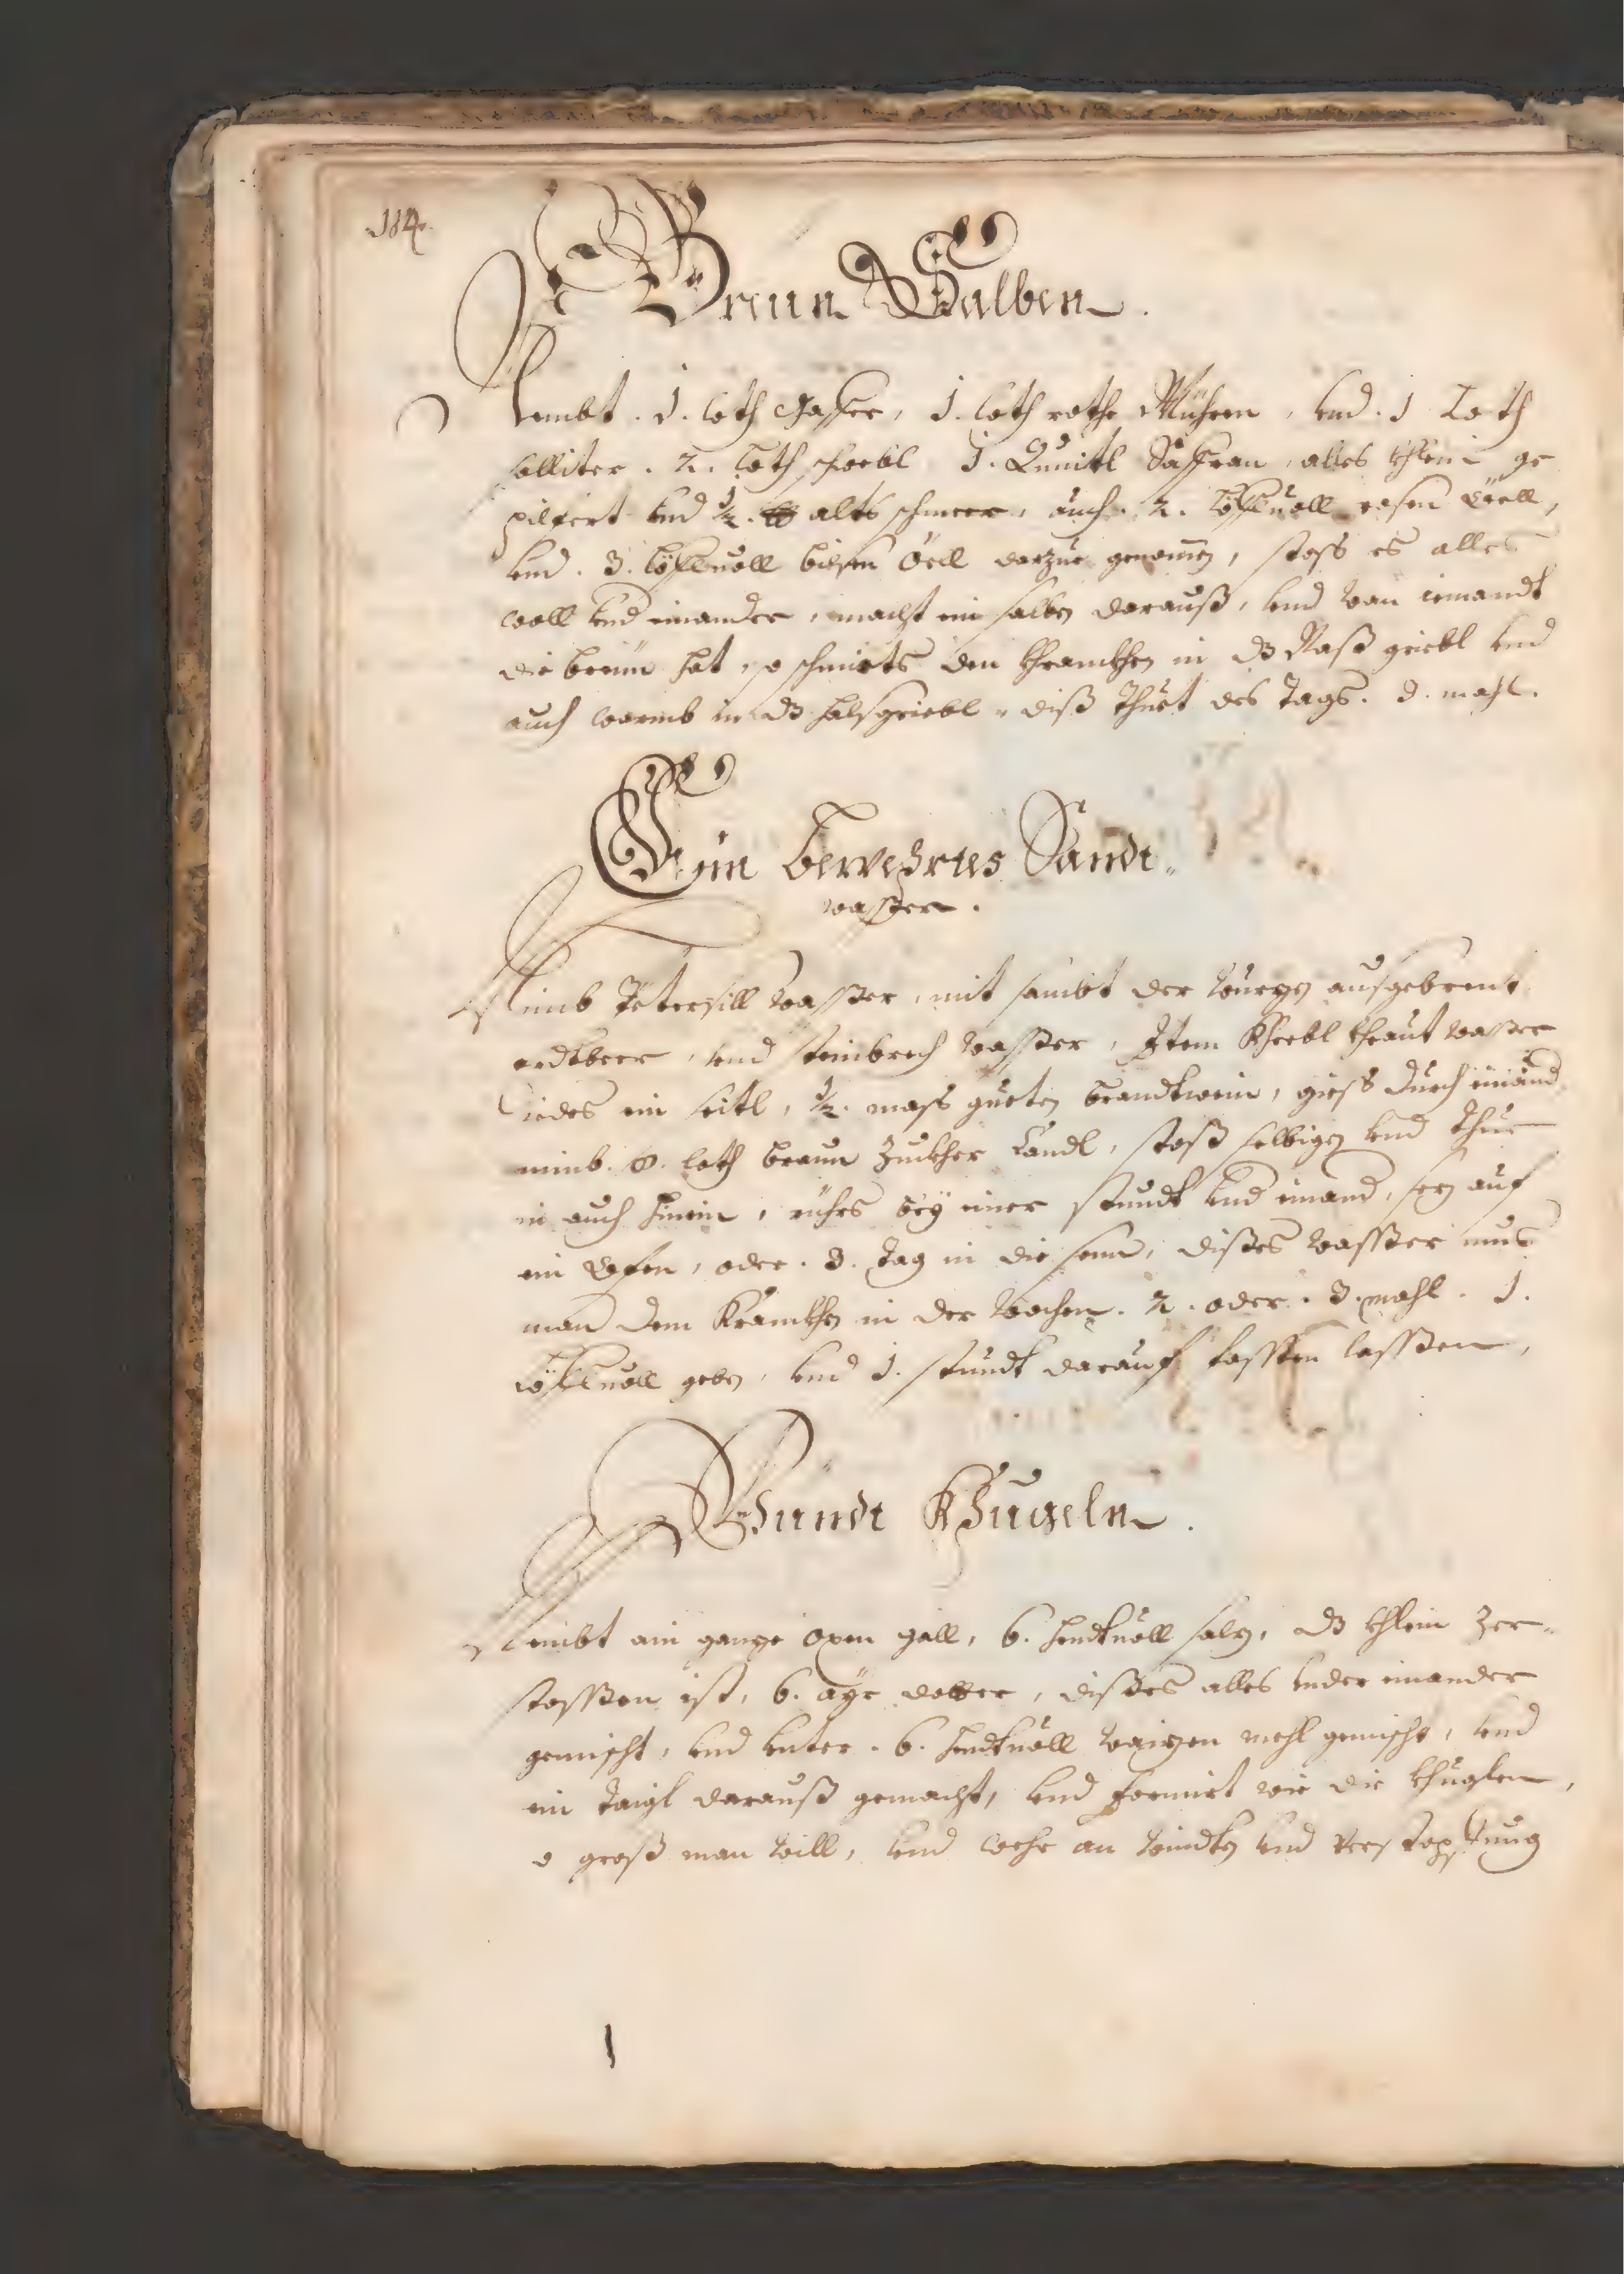 184.
Breün Salben.
Nembt. 1. loth Gaffer, 1. loth rothe Mührrn, vnd. 1 Loth
salliter. 2. loth schwebl 1. Quintl Saffran, alles khlein ge
pilfert vnd ½. lb alts schmeer, auch. 2. Löflvoll rosen Öell,
vnd. 3. Löflvoll bilsen Öell darzue genomen, stoss es alles
woll vnd einander, macht ein salben darauß, vnd wan iemandt
die breün hat, so schmierts den khranckhen in dz Naß griebl vnd
auch warmb in dz halsgriebl, diß thuet des Tags. 3. mahl.
Ein bewehrtes Sandt
wasser.
Nimb Petersill wasser, mit sambt der wurzen aufgebrent
erdtbeer, vnd steinbrech wasser, Item Khrebl khraut wasser
iedes ein seitl, ½. mass gueten brandtwein, giess durch einand
nimb. 8. loth braun Zuckher Candl, stoß selbigen vnd thue
in auch hinein, rührs bey einer stundt vnd einand, sez auf
ein Ofen, oder. 3. tag in die sonn, dißes wasser mus
man dem Kranckhen in der wochen. 2. oder. 3. mahl. 1.
Löflvoll geben, vnd 1. stundt darauf fasten lassen,
Windt Khugeln.
Nembt ain ganze oxen gall, 6. handtvoll salz, dz khlein Zer
stossen ist, 6. ayr dotter, dißes alles vnder einander
gemischt, vnd vnter. 6. handtvoll waizen mehl gemischt, vnd
ein taigl darauß gemacht, vnd formiert wie die khuglen,
so groß man will, vnd wehr an windten vnd verstopfung